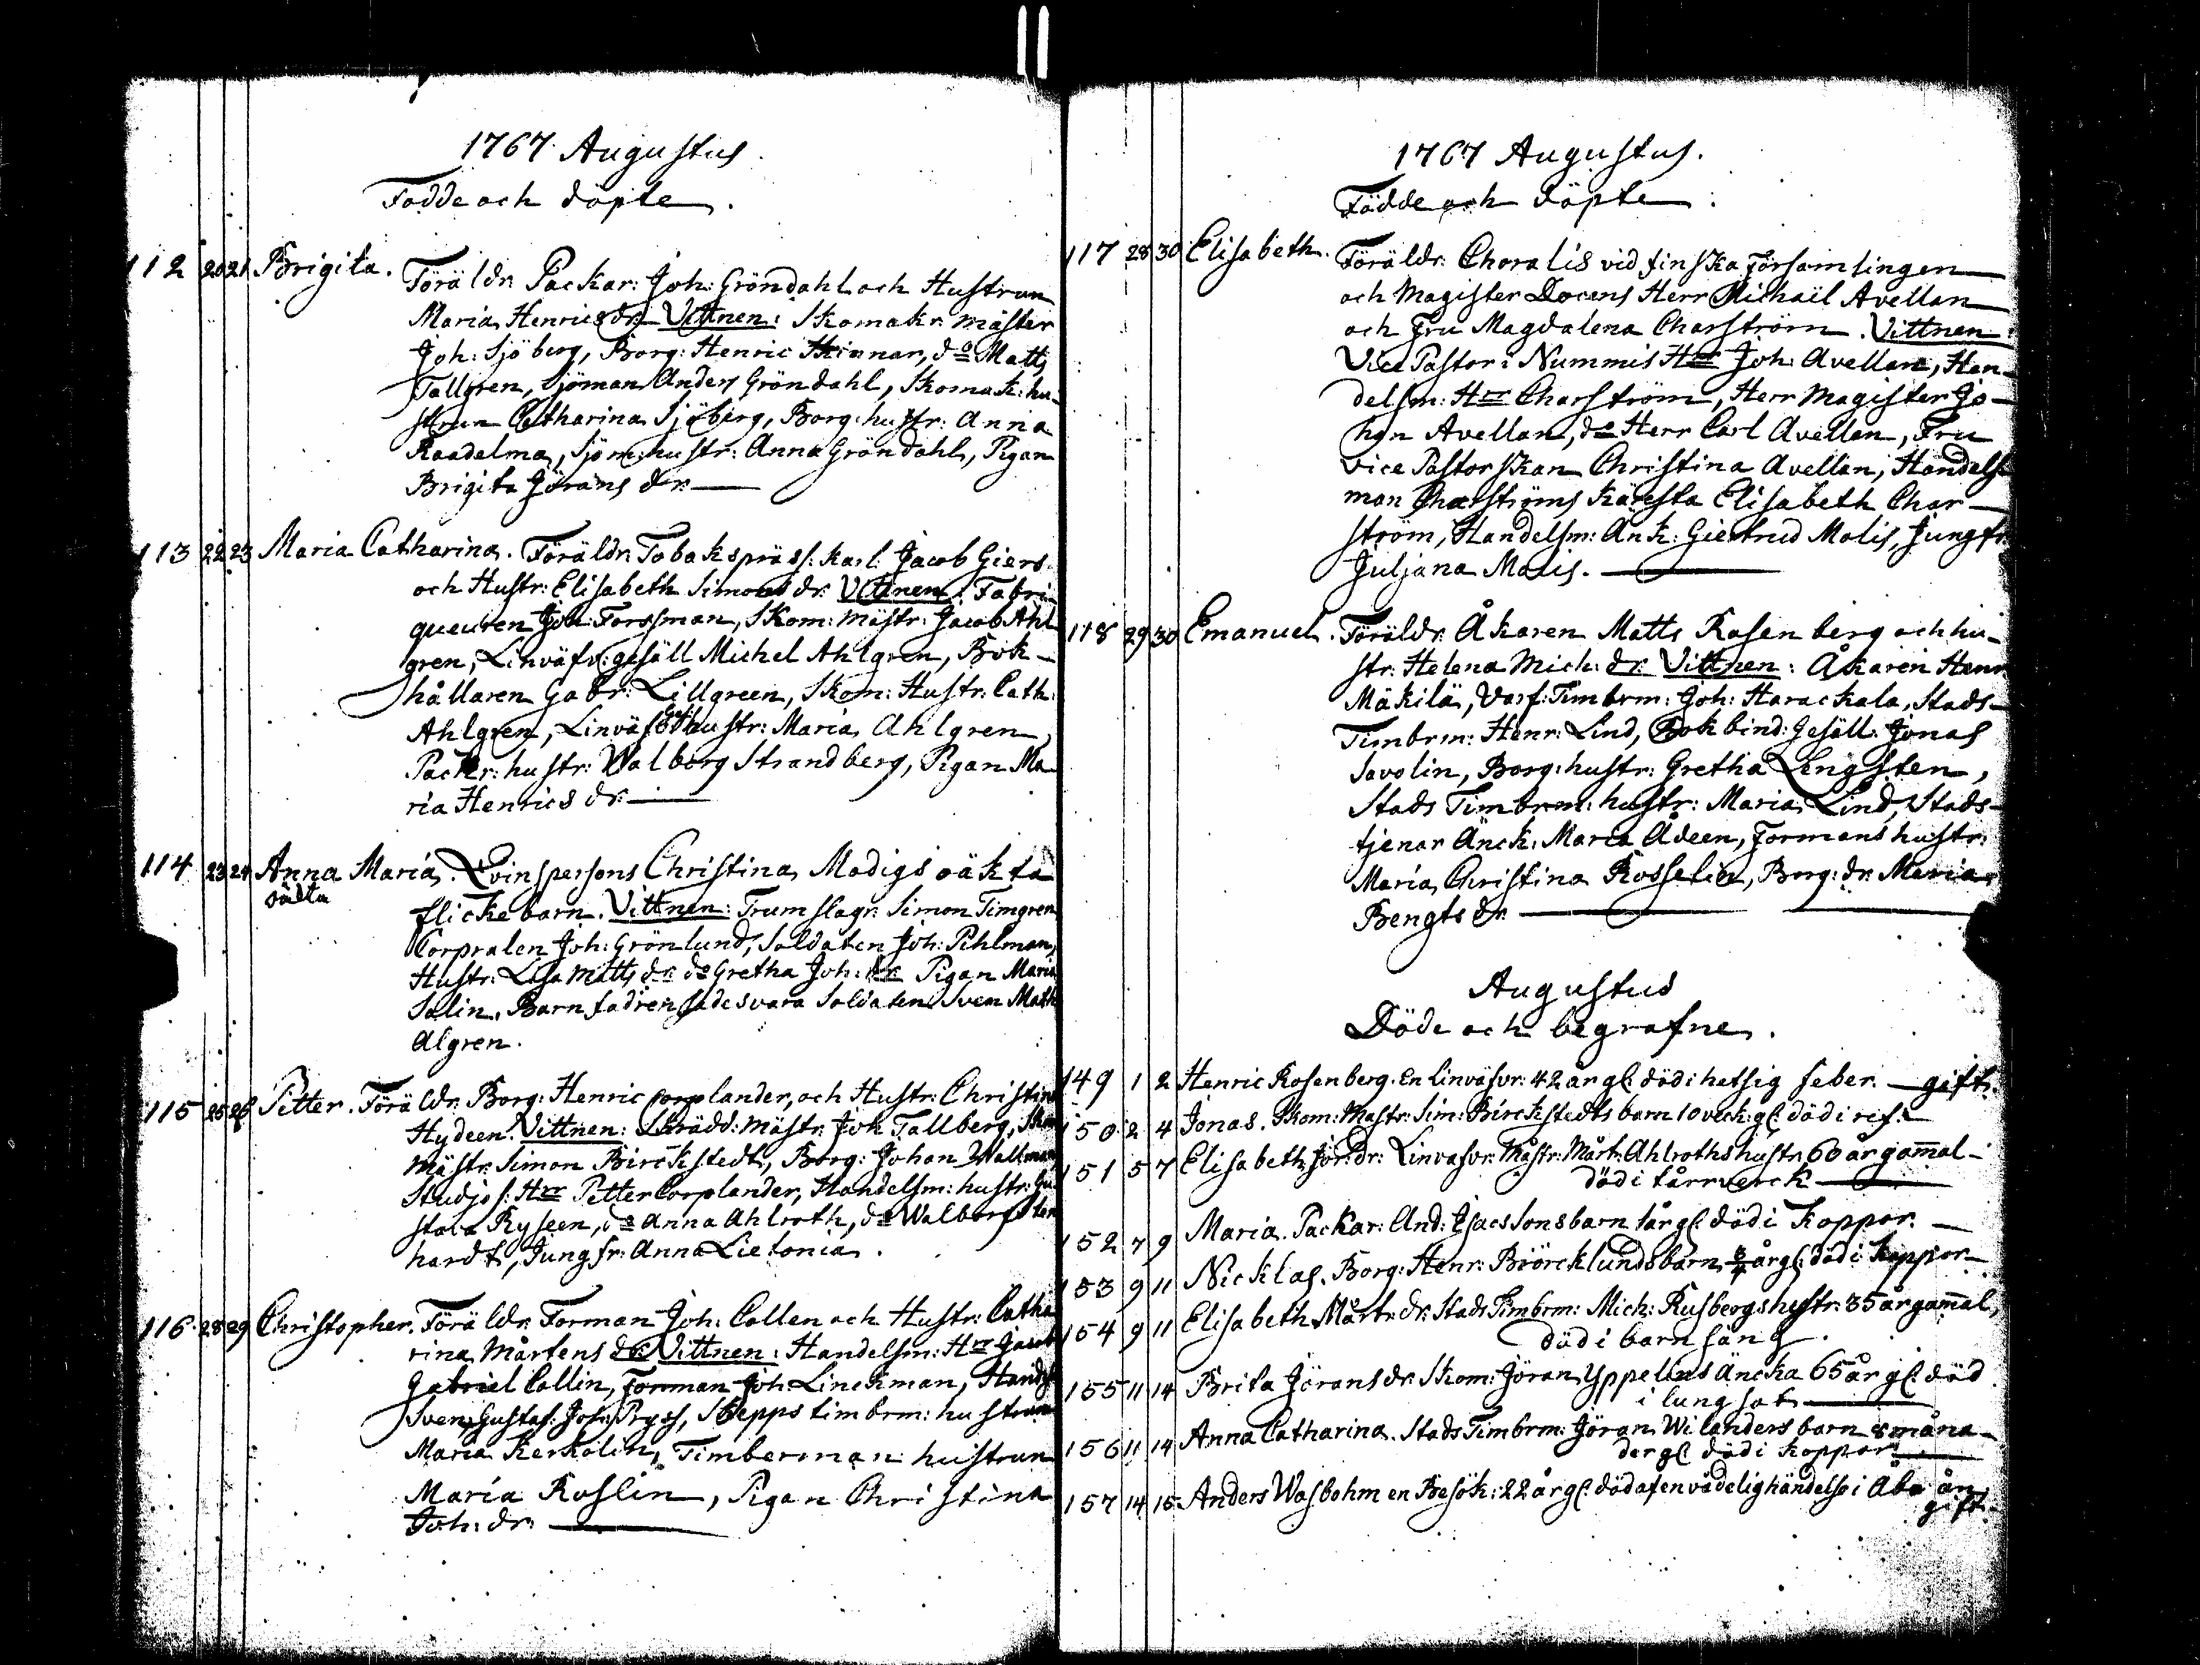 1767 Augustus
Födde och döpte
112 20 21 Brigita. Föräldr. Packar: Joh: Gröndahl och Hustrun
Maria Henricsdr. Vittnen: Skomakr. mäster
Joh: Sjöberg, Borg: Henric Skinnar, do Matts
Tallgren, Sjöman Anders Gröndahl, Skomak: hu-
strun Catharina Sjöberg, Borg: hustr: Anna
Raadelma, Sjöm: hustr: Anna Gröndahl, Pigan
Brigita Jörans dr.
113 22 23 Maria Catharina. Föräldr. Tobakspräss: karl: Jacob Giers
och Hustr: Elisabeth Simons dr. Vittnen: Fabri-
queuren Joh: Forssman, Skom: mästr: Jacob Ahl
gren, Linväfv: gesäll Michel Ahlgren, Bok-
hållaren Gabr: Lillgreen, Skom: Hustr: Cath:
Ahlgren, Linväf: Ges: hustr: Maria Ahlgren,
Packr: hustr: Walborg Strandberg, Pigan Ma
ria Henrics dr.
114 23 24 Anna Maria. Qvinspersons Christina Modigs oäkta
oäkta
flickebarn. Vittnen: Trumslagr. Simon Timgren
Corpralen Joh: Grönlund, Soldaten Joh: Pihlman,
Hustr: Lisa Matts dr. do Gretha Joh: dr. Pigan Maria
Salin. Barnfadren sades vara Soldaten Sven Math
Algren.
115 25 26 Petter. Föräldr. Borg: Henric Corplander, och Hustr: Christina
Hydeen. Vittnen: Skrädd: mästr: Joh Tallberg, Skom
mästr. Simon Birckstedt, Borg: Johan Wallman
Studjos: Hrr Petter Corplander, Handelsm: hustr: Gu
stava Ryseen, do Anna Ahlroth, do Walborg Sten
hardt, Jungfr: Anna Lietonia.
116 28 29 Christopher. Föräldr. Forman Joh: Collen och Hustr: Catha
rina Mårtens dr. Vittnen: Handelsm: Hrr Jacob
Gabriel Collin, Forman Joh Linckman, Handls
Sven: Gustaf: Joh: Pryss, Skepps timbrm: hustrun
Maria Kerkolin, Timberman: hustrun
Maria Roslin, Pigan Christina
Joh: dr.
1767 Augustus.
Födde och döpte
117 28 30 Elisabeth. Föräldr: Choralis vid finska församlingen
och Magister Docens Herr Michaël Avellan
och Fru Magdalena Charström. Vittnen:
Vice Pastor i Nummis Hrr Joh: Avellan, Han-
delsm: Hrr Charström, Herr Magister Jo-
han Avellan, do Herr Carl Avellan, Fru
Vice Pastorskan Christina Avellan, Handels
man Charströms käresta Elisabeth Char-
ström, Handelsm: Änk: Giertrud Molis, Jungfr:
Juljana Molis.
118 29 30 Emanuel. Föräldr. Åkaren Matts Rosenberg och hu-
str: Helena Mich: dr. Vittnen: Åkaren Henr
Mäkilä, Varf: Timbrm: Joh: Harackala, Stads-
Timbrm: Henr: Lind, Bokbind: Gesäll: Jonas
Savolin, Borg: hustr: Gretha Lengsten,
Stads Timbrm: hustr: Maria Lind, Stads-
tjenar Änck: Maria Ådeen, Formans hustr:
Maria Christina Rosselin, Borg: dr. Maria
Bengts dr.
Augustus
Döde och begrafne.
149 1 2 Henric Rosenberg. En linväfvr: 42 år gl: död i hetsig feber. gift.
150 2 4 Jonas. Skom: Mästr: Sim: Birckstedts barn 10 veck: gl: död i ref:
151 5 7 Elisabeth Jör: dr: Linväfvr: Mästr: Mårt: Ahlroths hustr: 60 år gamal
död i tårrverck
152 7 9 Maria. Packar: And: Isacssons barn 1 år gl: död i Koppor.
153 9 11 Nicklas. Borg: Henr: Biörcklunds barn 3/4 år gl: död i koppor
154 9 11 Elisabeth Mårt: dr. Stads Timbrm: Mich: Rusbergs hustr: 35 år gamal,
död i barnsäng.
155 11 14 Brita Jörans dr. Skom: Jöran Yppelins Äncka 65 år gl: död
i lungsot
156 11 14 Anna Catharina. Stads Timbrm: Jöran Wilanders barn 8 måna-
der gl: död i Koppor
157 14 15 Anders Wasbohm en Besök: 22 år gl: död af en vådelig händelse i Åbo ån
gift.